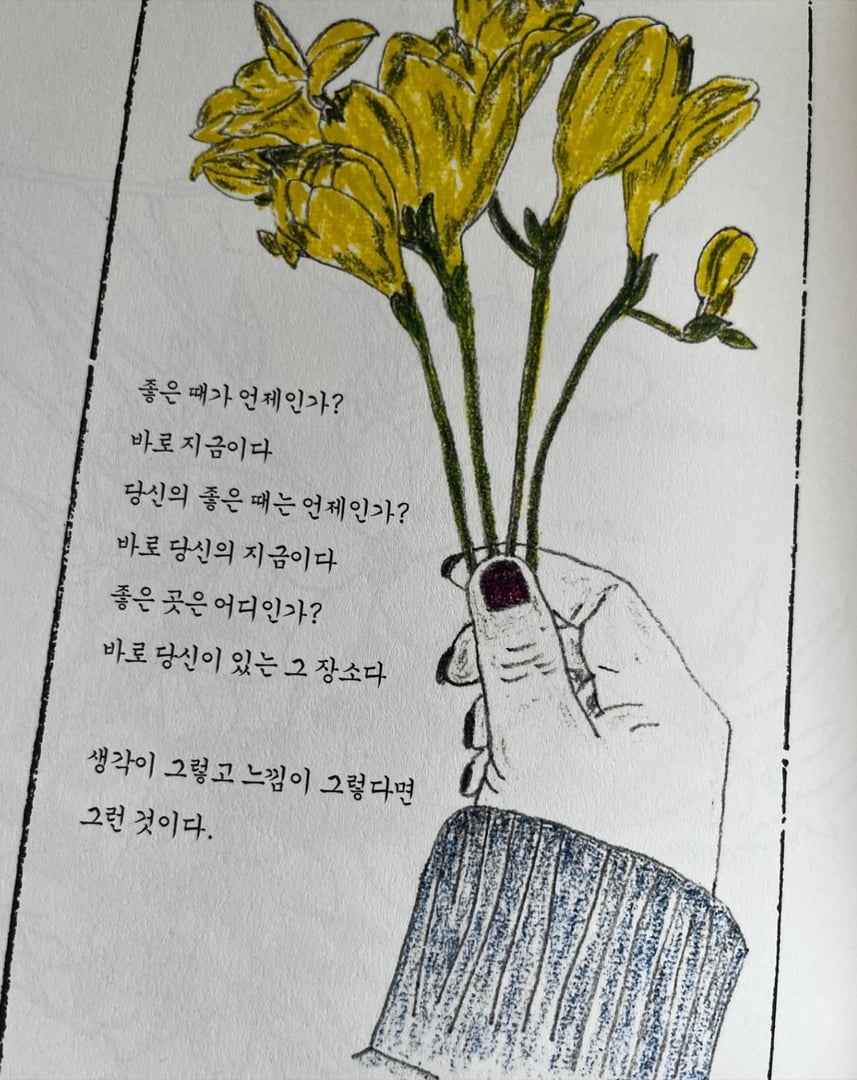 좋은 때가 언제인가?
바로 지금이다
당신의 좋은 때는 언제인가?
바로 당신의 지금이다
좋은 곳은 어디인가?
바로 당신이 있는 그 장소다
생각이 그렇고 느낌이 그렇다면
그런 것이다.